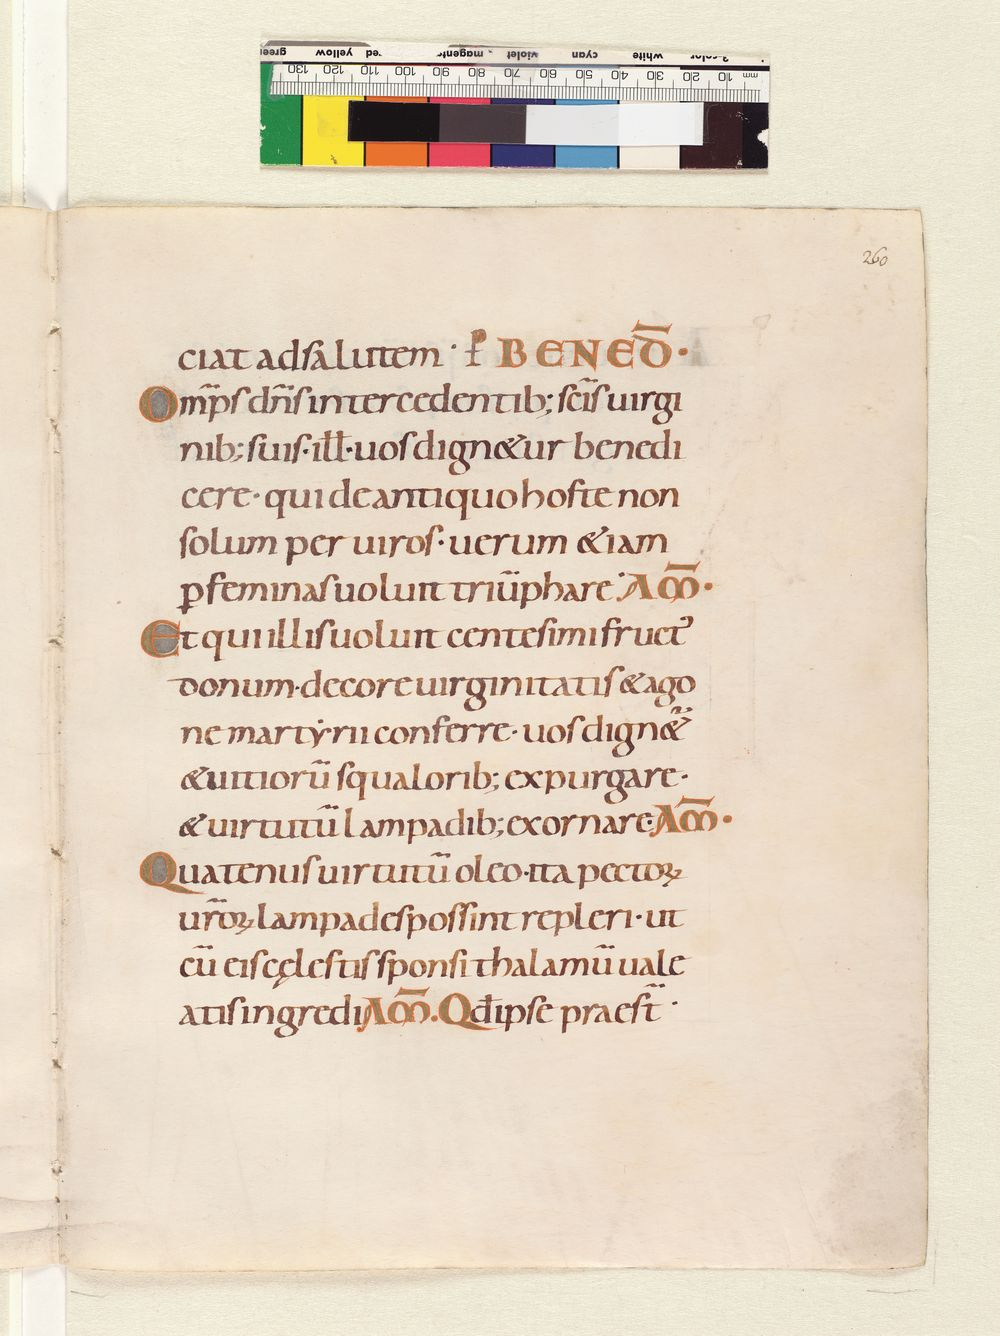 green yellow red magenta violet cyan white 3-color
130 120 110 100 90 80 70 60 50 40 30 20 10 mm
260
ciat ad salutem · ꝑ BENED̄·
Om̅ps dn̅s intercedentib; sc̅is uirgi
nib; suis · ill̅ · uos dign&ur benedi
cere · qui de antiquo hoste non
solum per uiros · uerum &iam
ꝑ feminas uoluit triū̅phare · AM̅·
Et qui illis uoluit centesimi fruct᾽
donum · decore uirginitatis & ago
ne martẏrii conferre · uos dign&̅
& uitiorū squalorib; expurgare ·
& uirtutū lampadib; exornare · AM̅·
Quatenus uirtutū oleo · ita pectoꝝ
ur̅oꝝ lampades possint repleri · ut
cū eis cęlestis sponsi thalamū uale
atis ingredi AM̅. Qd̅ ipse praest̅ ·